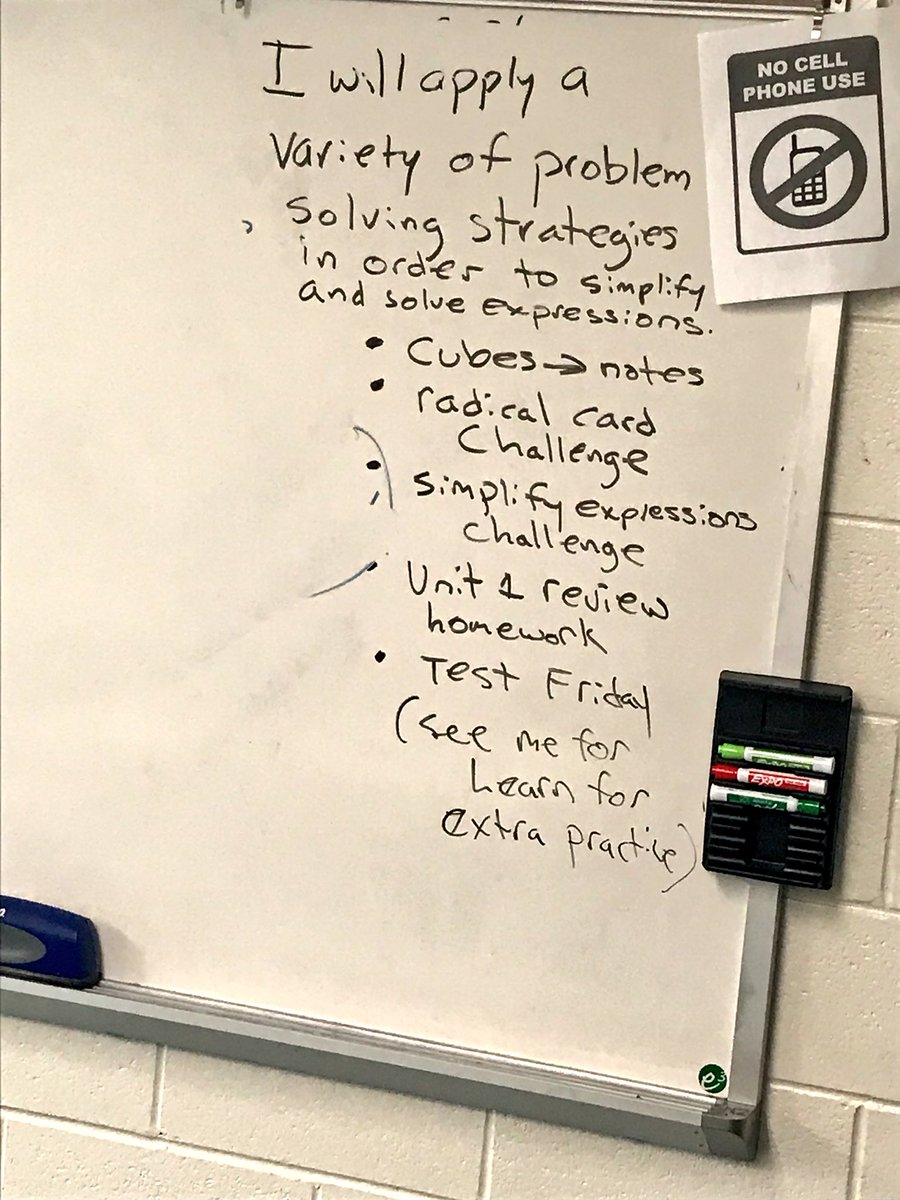 I will apply a
variety of problem
solving strategies
in order to simplify
and solve expressions.
• Cubes → notes
• radical card
challenge
• simplify expressions
challenge
• Unit 1 review
homework
• Test Friday
(see me for
Learn for
extra practice)
NO CELL
PHONE USE
EXPO